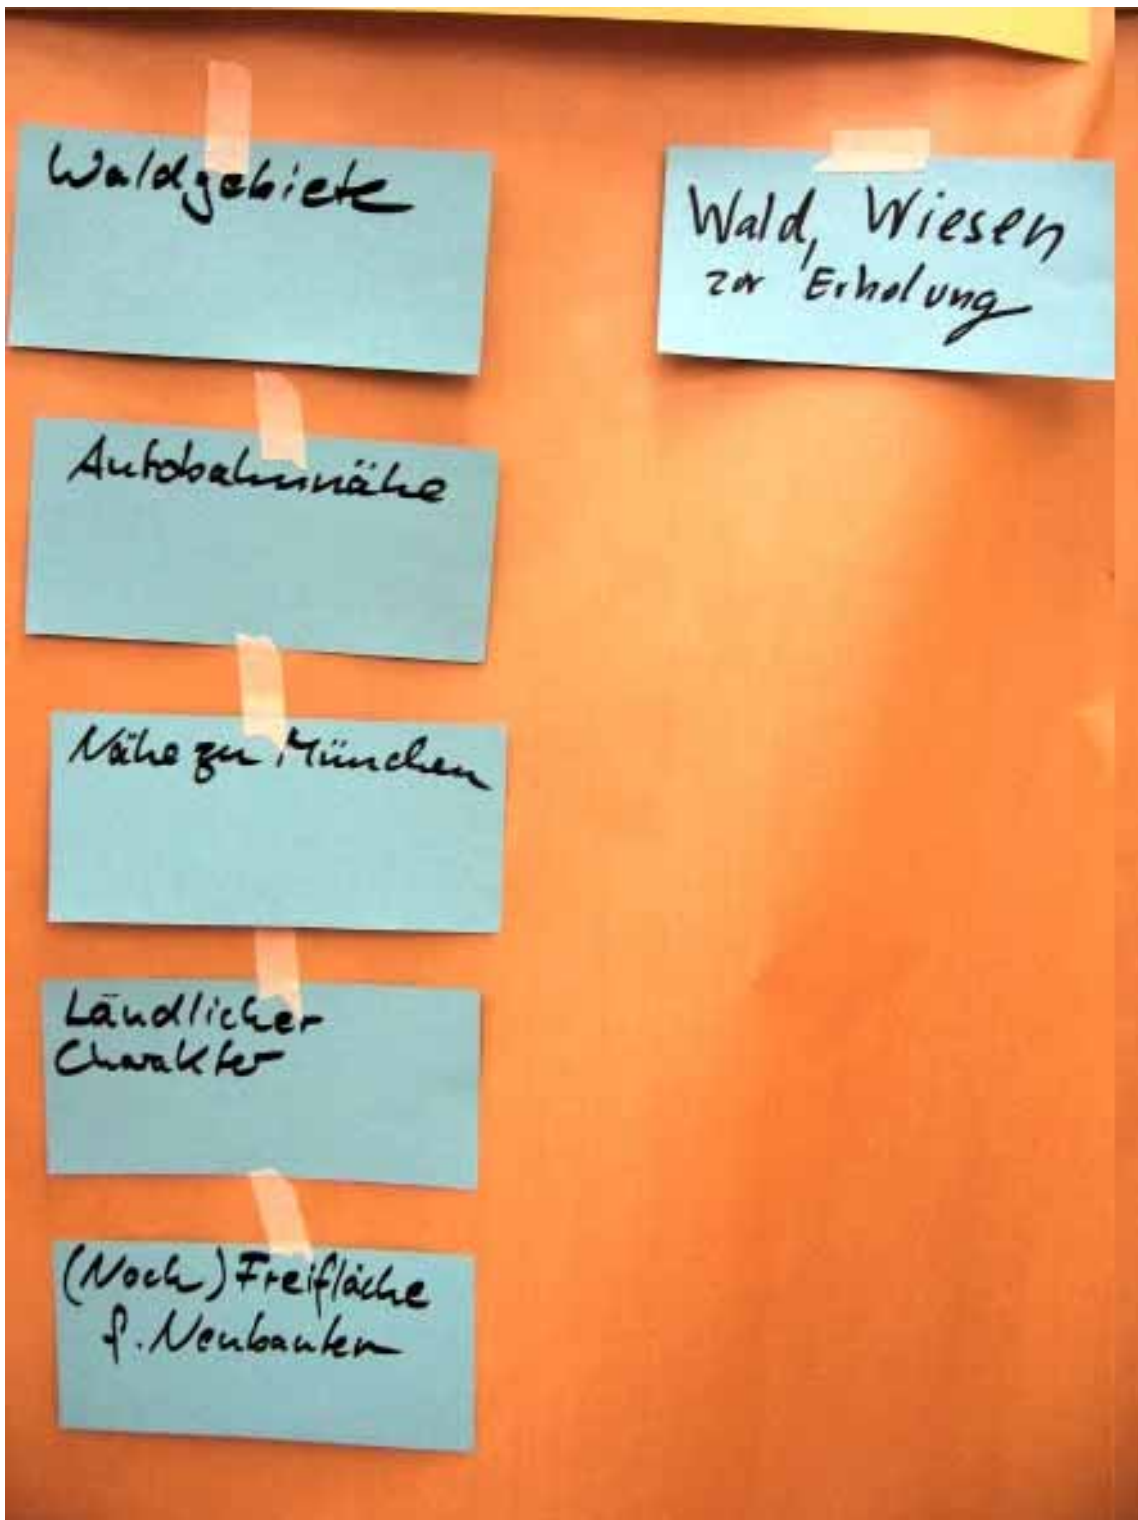 Waldgebiete
Autobahnnähe
Nähe zu München
Ländlicher
Charakter
(Noch) Freifläche
f. Neubauten
Wald, Wiesen
zur Erholung